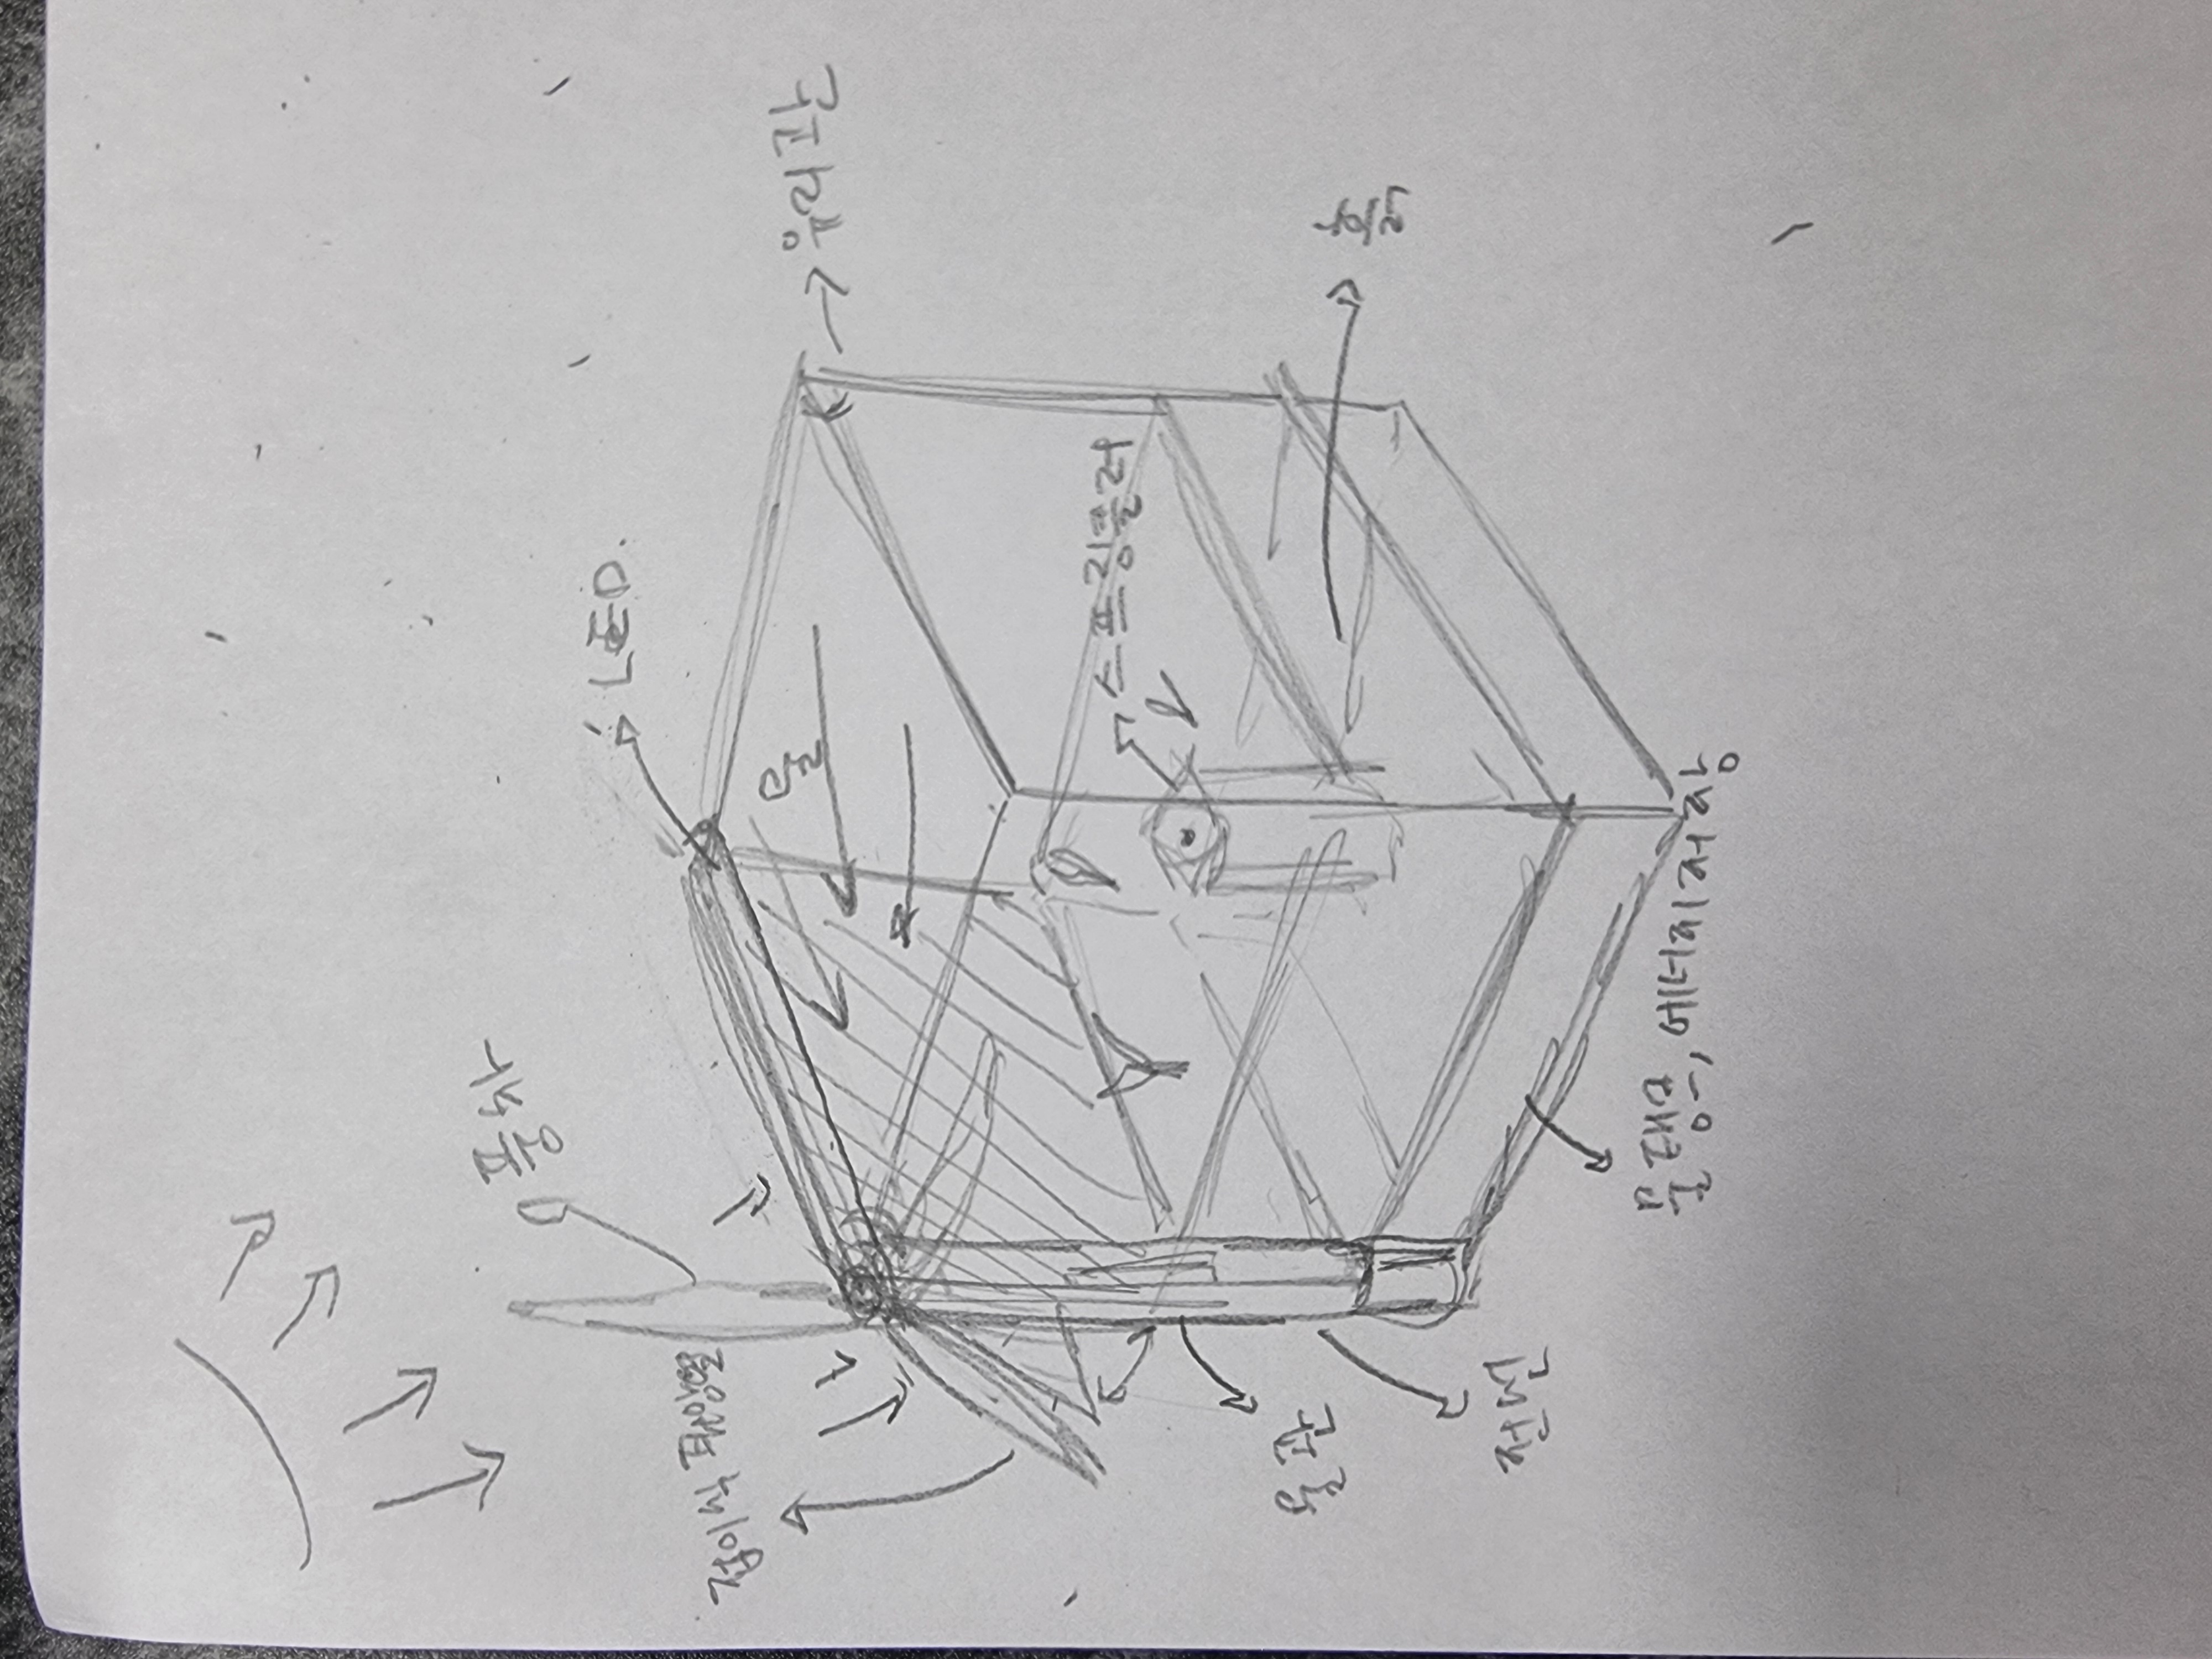 풍차
LED.
접이식 태양열
물
유리관
스프링쿨러
물관
흙
전선
물탱크, 에너지저장